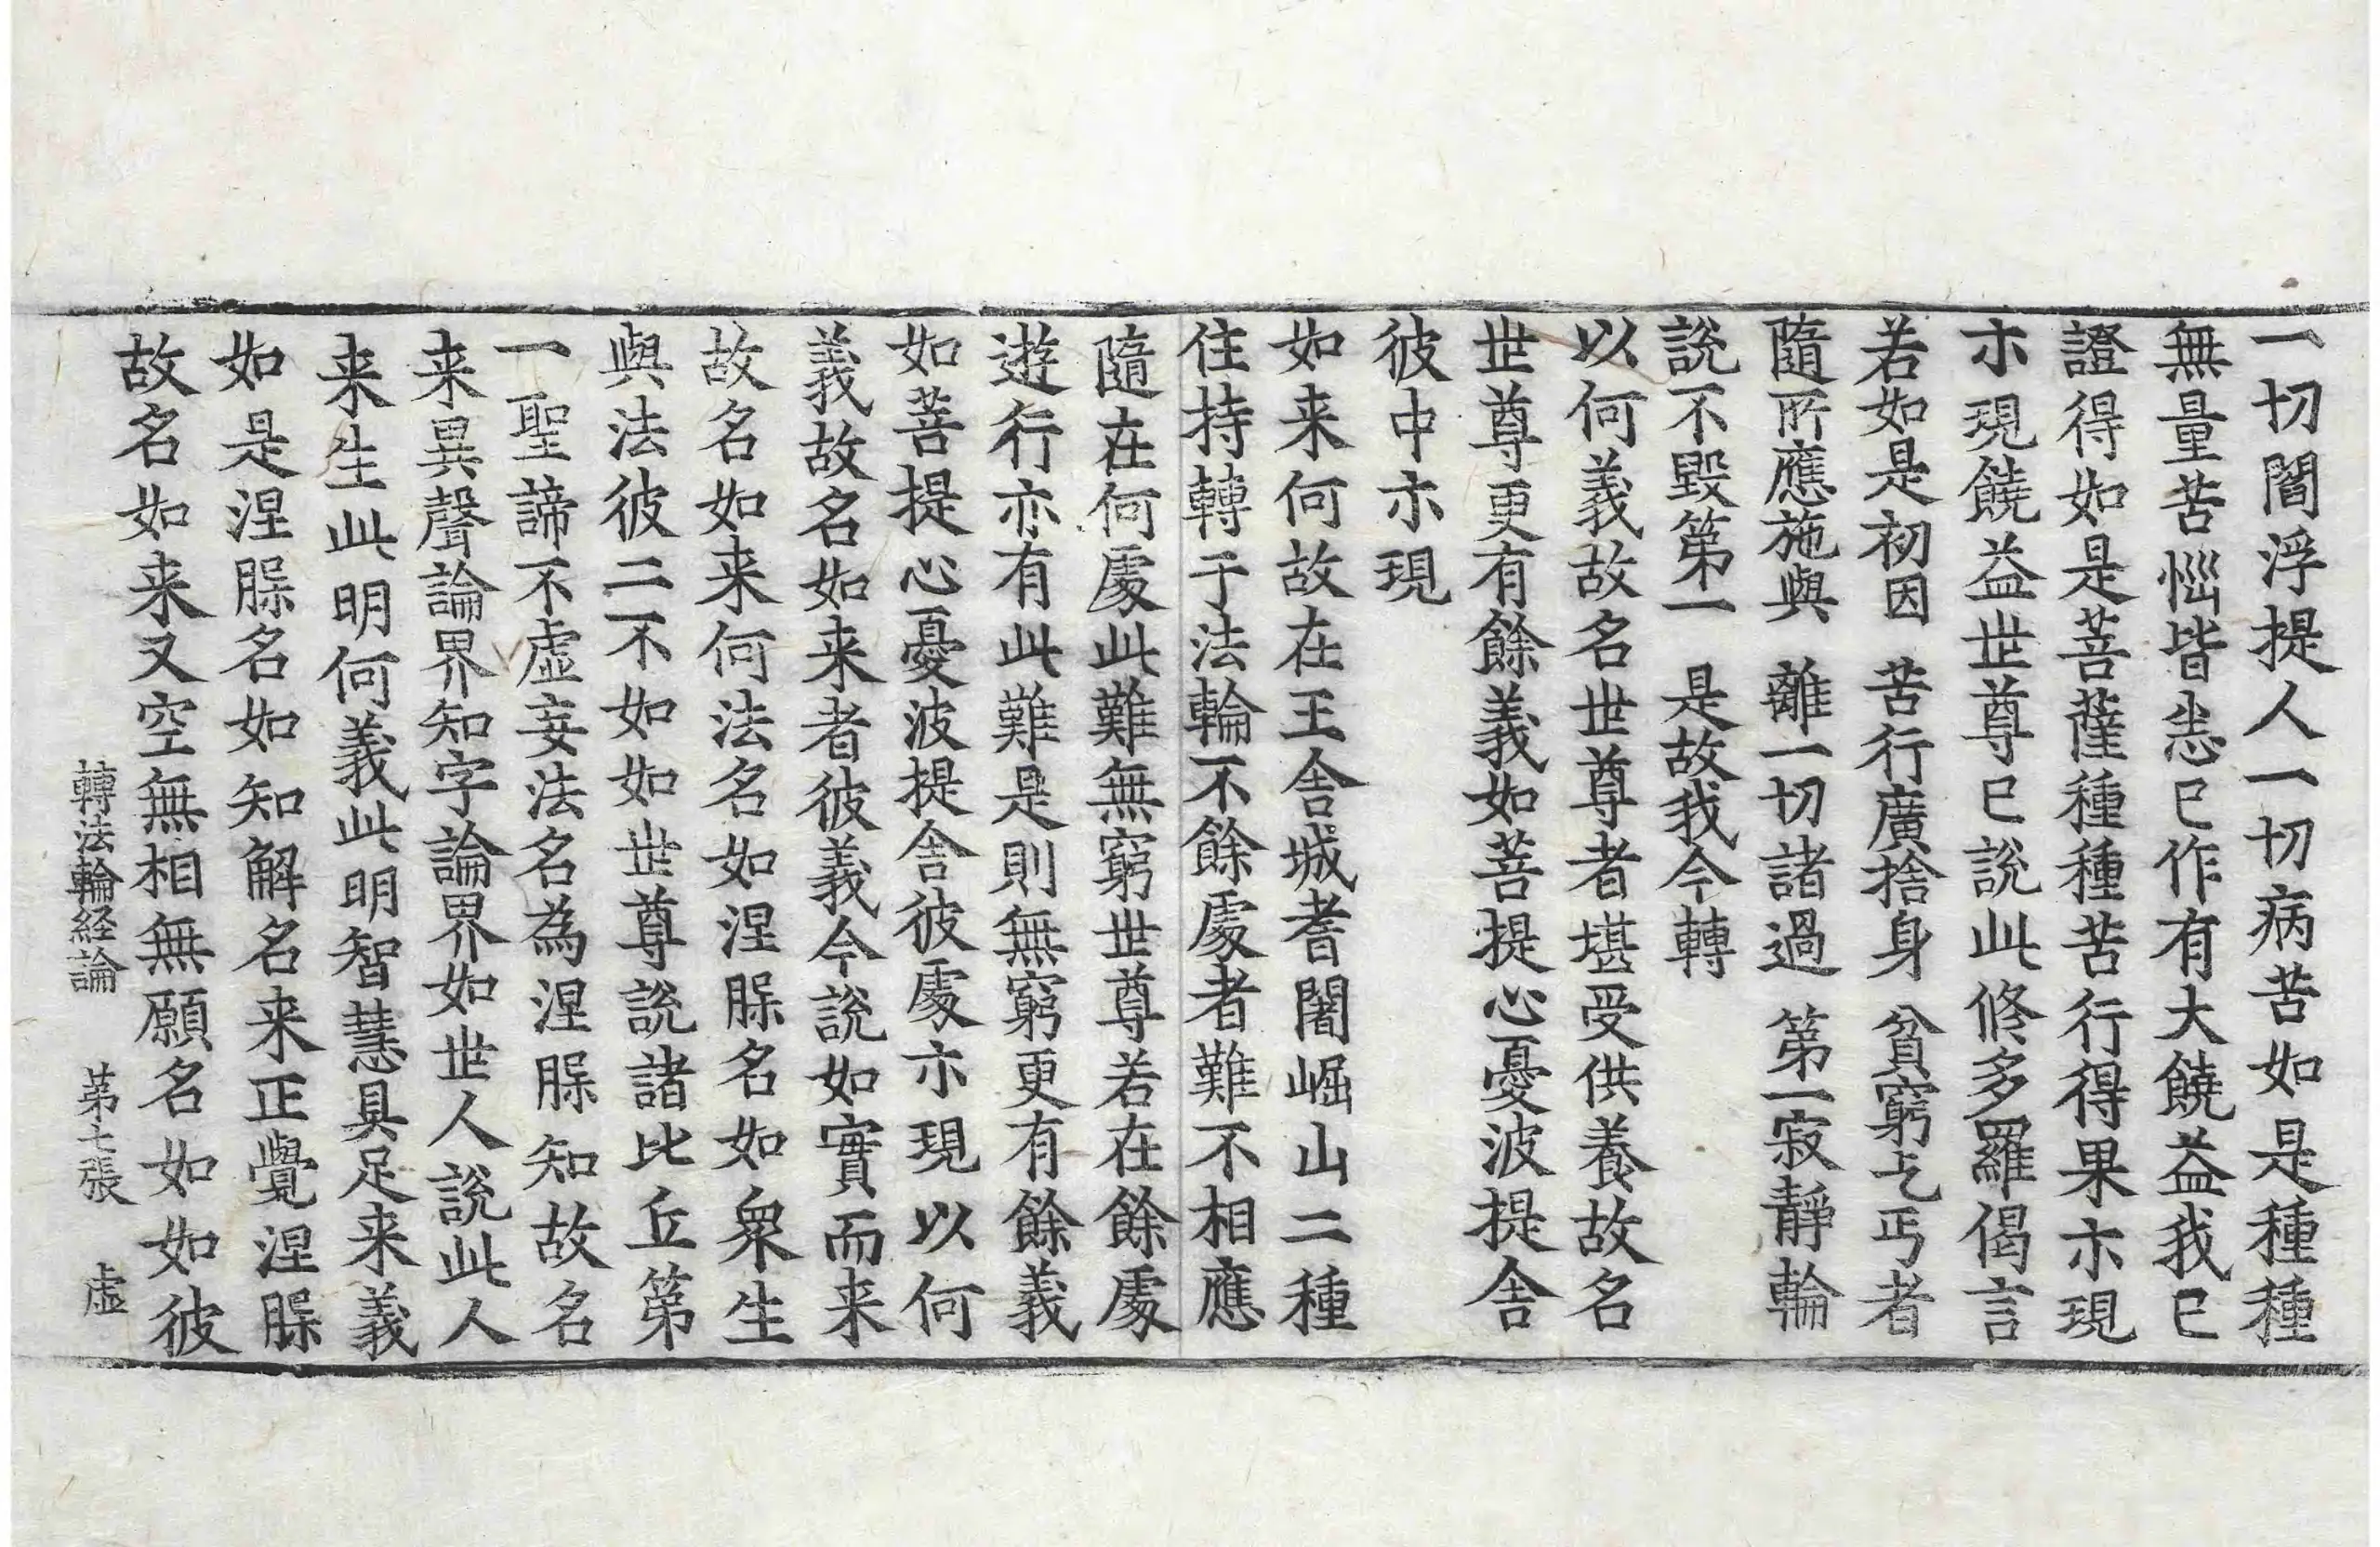 一切閻浮提人一切病苦如是種種
無量苦惱皆恙已作有大饒益我已
證得如是菩薩種種苦行得果亦現
亦現饒益世尊已說此修多羅偈言
若如是初因　苦行廣捨身　貧窮乞丐者
隨所應施與　離一切諸過　第一寂靜輪
說不毀第一　是故我今轉
以何義故名世尊者堪受供養故名
世尊更有餘義如菩提心憂波提舍
彼中亦現
如来何故在王舍城耆闍崛山二種
住持轉于法輪不餘處者難不相應
隨在何處此難無窮世尊若在餘處
遊行亦有此難是則無窮更有餘義
如菩提心憂波提舍彼處亦現以何
義故名如来者彼義今說如實而来
故名如来何法名如涅槃名如衆生
與法彼二不如如世尊說諸比丘第
一聖諦不虛妄法名為涅槃知故名
来異聲論界知字論界如世人說此人
来生此明何義此明智慧具足来義
如是涅槃名如知解名来正覺涅槃
故名如来又空無相無願名如如彼
轉法輪経論　第七張　虛